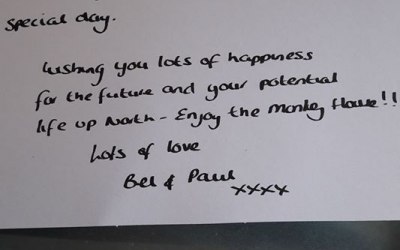 special day.
Wishing you lots of happiness
for the future and your potential
life up North - Enjoy the Monkey House!!
Lots of love
Bel & Paul
xxxx